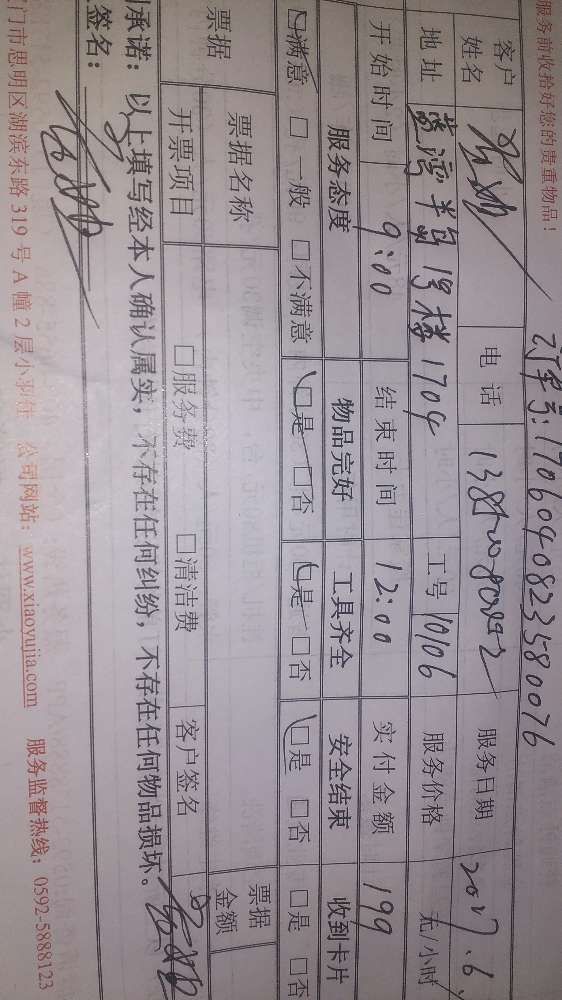 服务前收拾好您的贵重物品！
订单号：1706040823580076
客户姓名 电话 服务日期 2017.6.
地址 蓝湾半岛 19号楼1704 工号 10106 服务价格 元/小时
开始时间 9:00 结束时间 12:00 实付金额 199
服务态度 物品完好 工具齐全 安全结束 收到卡片
□满意 □一般 □不满意 □是 □否 □是 □否 □是 □否 □是 □否
票据 票据名称 票据金额
开票项目 □服务费 □清洁费 客户签名
承诺：以上填写经本人确认属实，不存在任何纠纷，不存在任何物品损坏。
签名：
门市思明区湖滨东路 319 号 A 幢 2 层小羽佳 公司网站：www.xiaoyujia.com 服务监督热线：0592-5888123